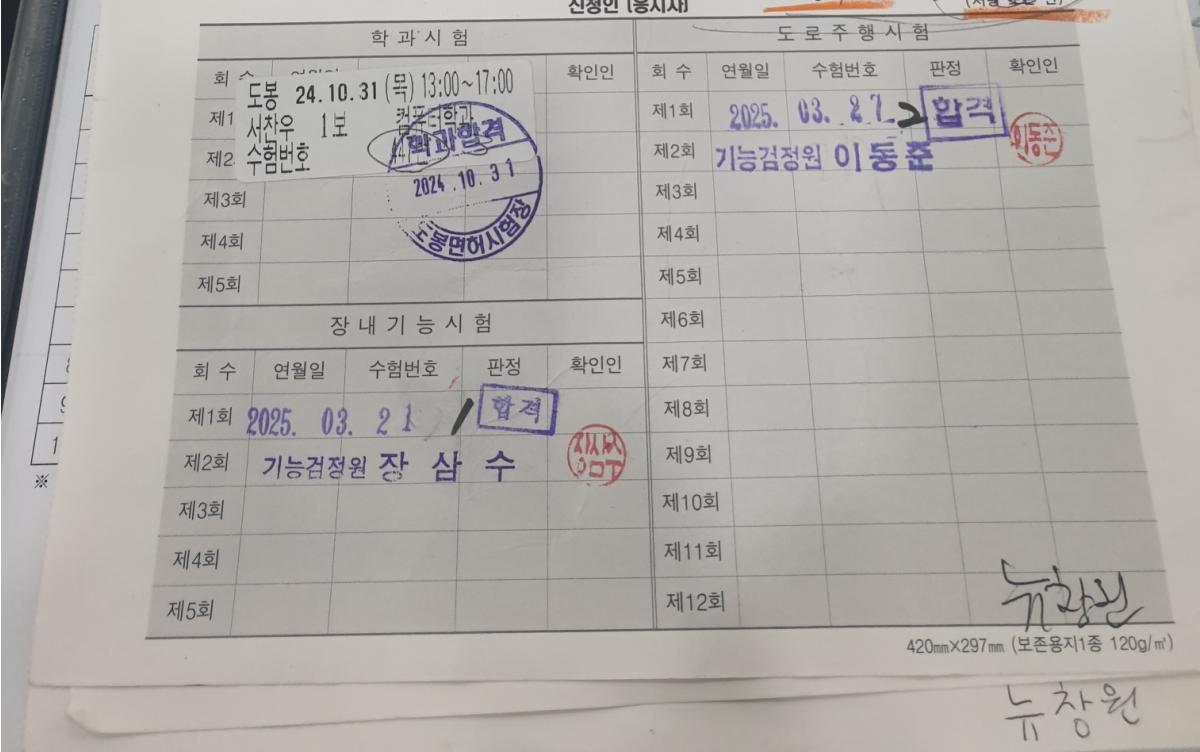 신청인 (응시자)
학 과 시 험
회 수
확인인
도봉 24.10.31 (목) 13:00~17:00
서찬우 1보 컴퓨터학과
수험번호
학과합격
2024.10.31
도봉면허시험장
제1
제2
제3회
제4회
제5회
장 내 기 능 시 험
회 수 연월일 수험번호 판정 확인인
제1회 2025. 03. 21 / 합격
제2회 기능검정원 장 삼 수
제3회
제4회
제5회
도 로 주 행 시 험
회 수 연월일 수험번호 판정 확인인
제1회 2025. 03. 27. 2 합격
이동준
제2회 기능검정원 이 동 준
제3회
제4회
제5회
제6회
제7회
제8회
제9회
제10회
제11회
제12회
뉴창원
420㎜×297㎜ (보존용지1종 120g/㎡)
뉴창원
※